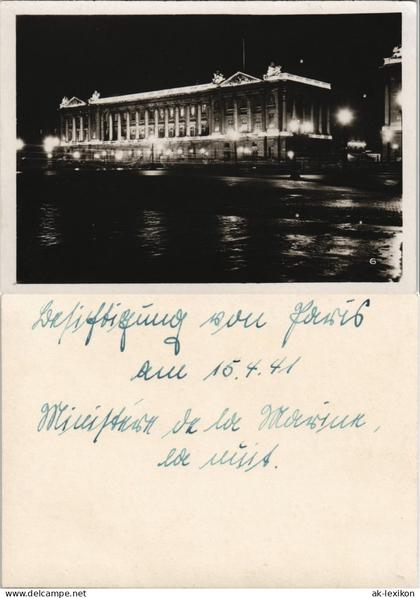 6
Besichtigung von Paris
am 15.4.41
Ministére de la Marine,
la nuit.
www.delcampe.net
ak-lexikon